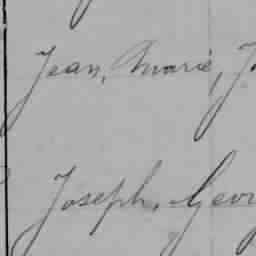 Jean, Marie, J
Joseph, Geor